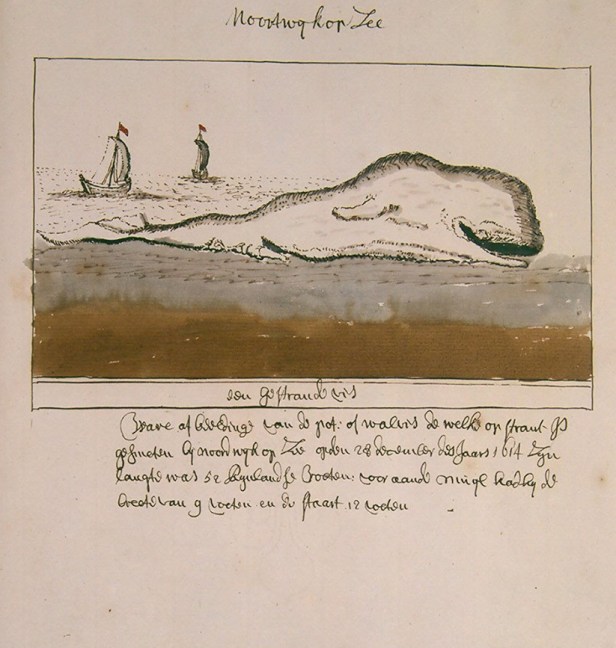 Noortwyk op Zee
een gestrande vis
Ware afbeeldinge van de pot: of walvis de welke op strant is
gesmeten by noordwyk op Zee op den 28 december des Jaars 1614 Zyn
langte was 52 Rynlandse Voeten: vooraande muyl had hy de
breete van 9 voeten en de staart 12 voeten